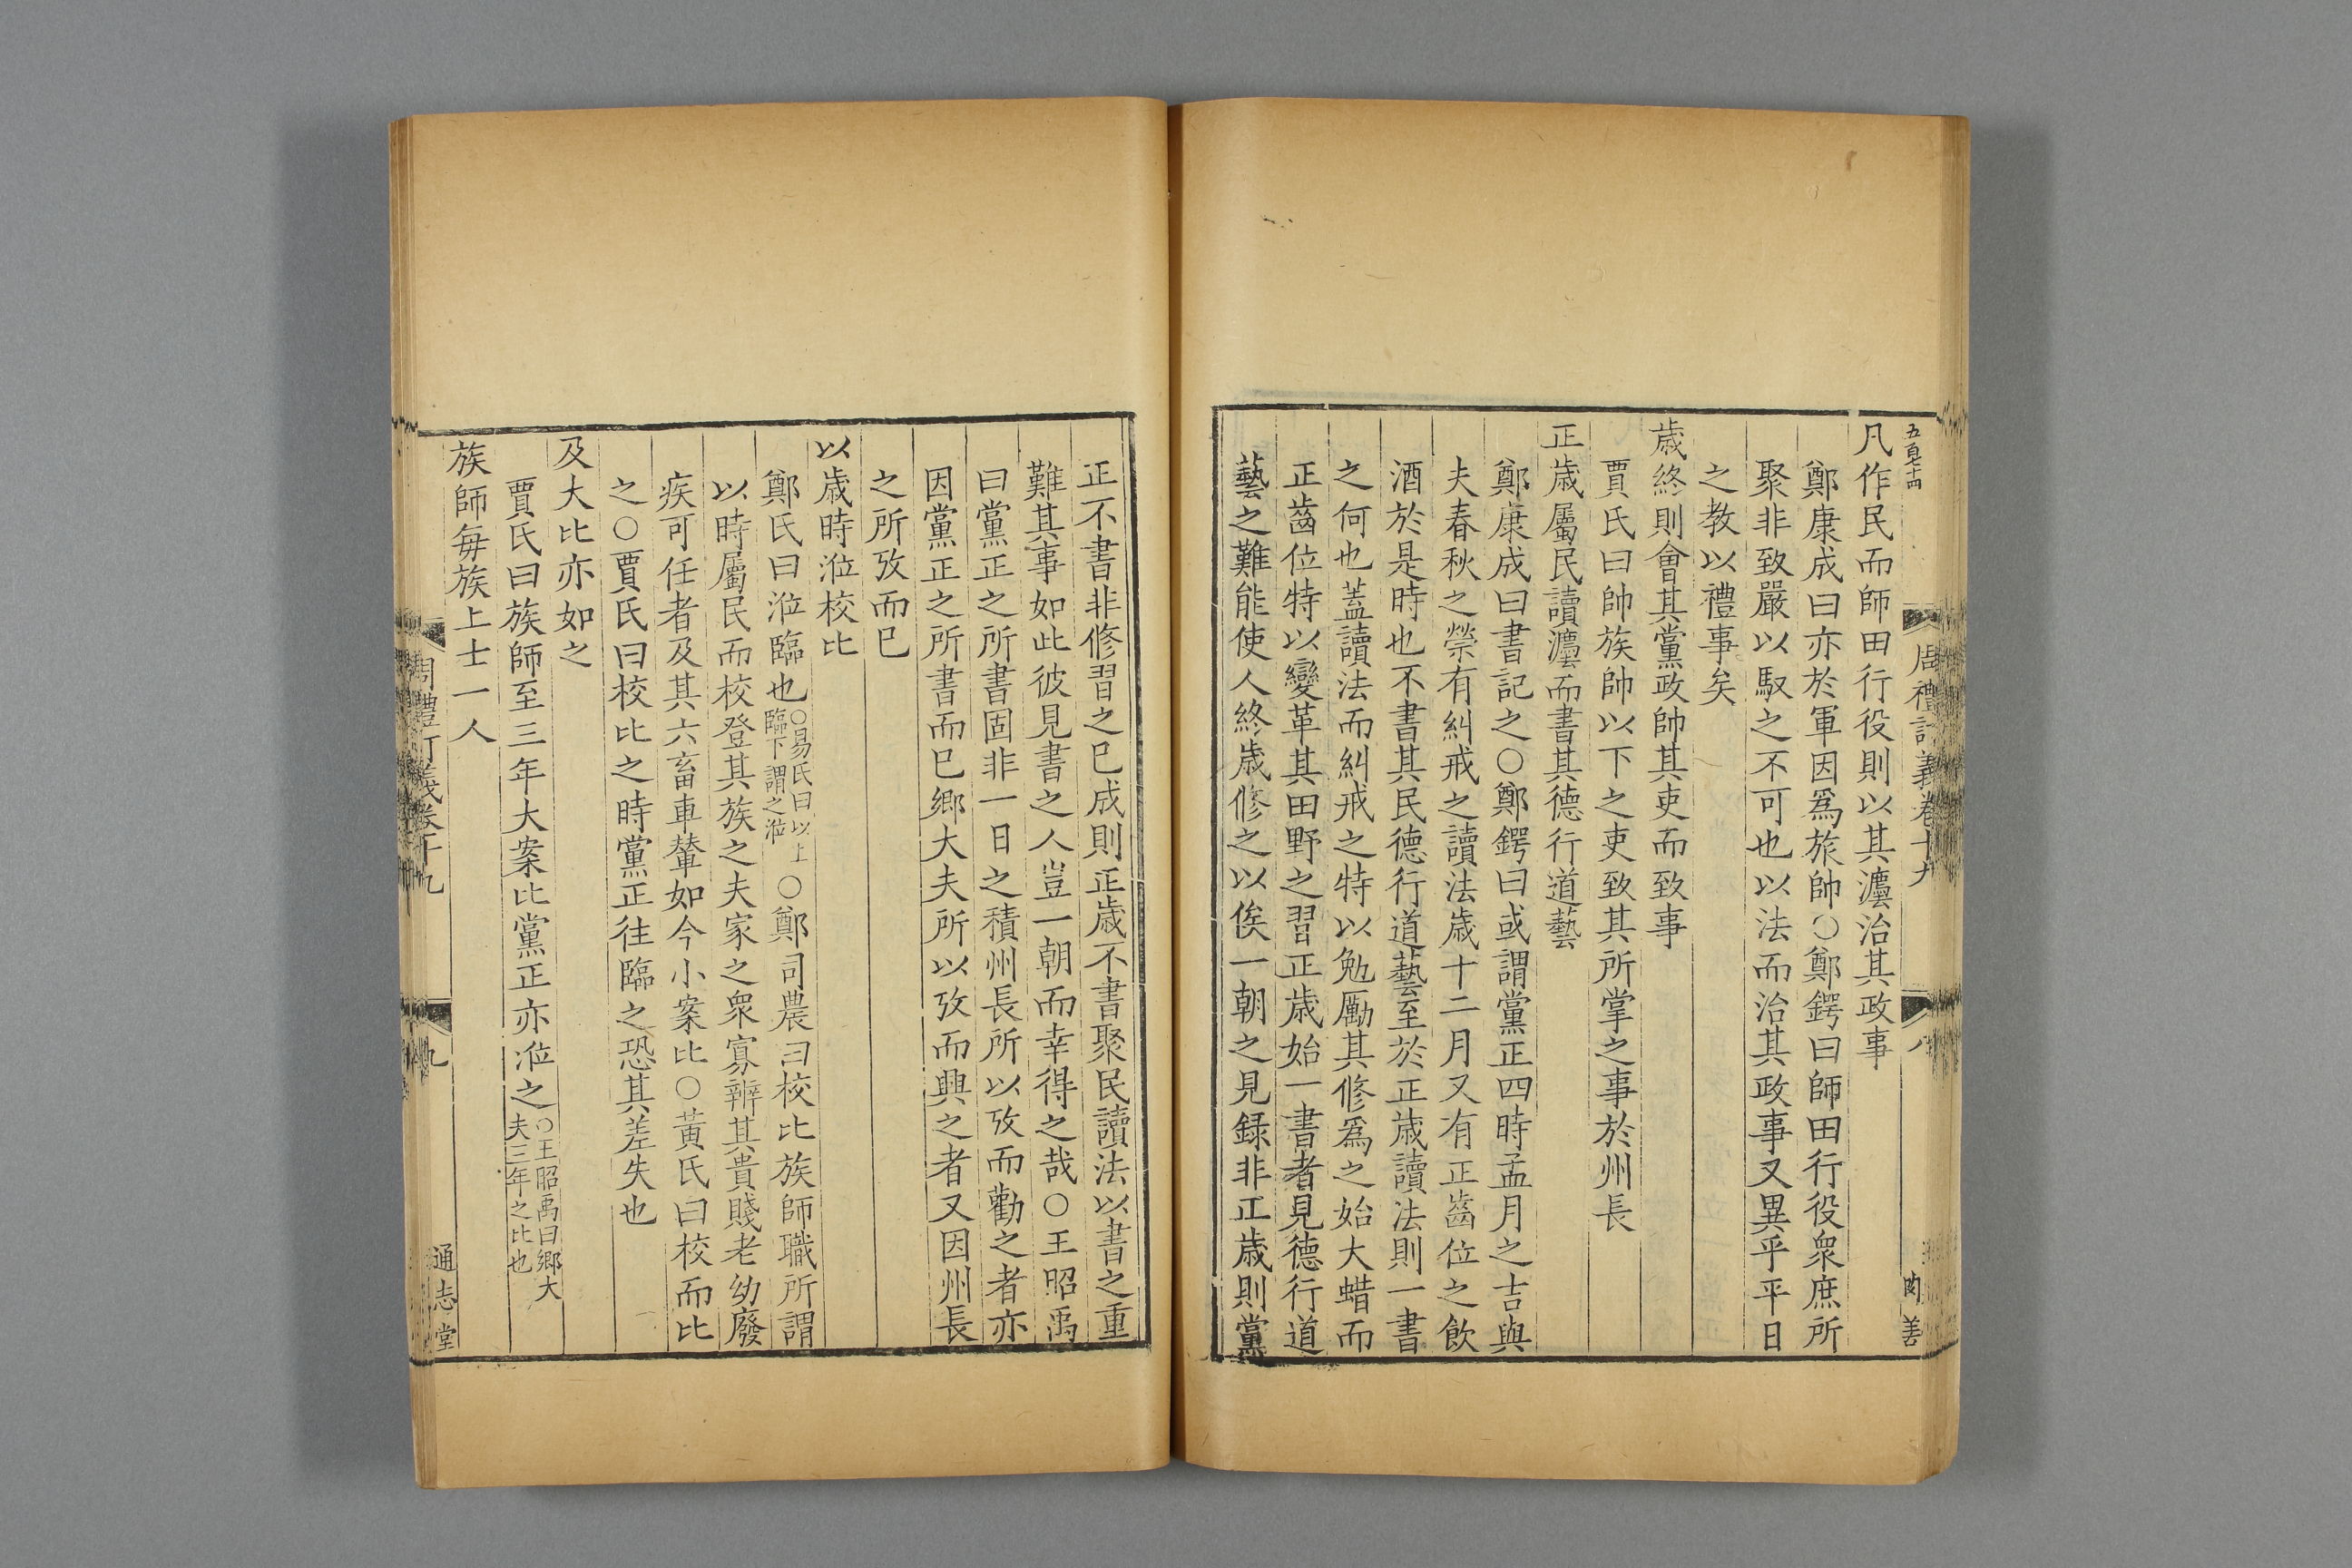 五百七十四
周禮訂義卷十九
八
凡作民而師田行役則以其灋治其政事
鄭康成曰亦於軍因爲旅帥○鄭鍔曰師田行役衆庶所
聚非致嚴以馭之不可也以法而治其政事又異乎平日
之教以禮事矣
歲終則會其黨政帥其吏而致事
賈氏曰帥族帥以下之吏致其所掌之事於州長
正歲屬民讀灋而書其德行道藝
鄭康成曰書記之○鄭鍔曰或謂黨正四時孟月之吉與
夫春秋之禜有糾戒之讀法歲十二月又有正齒位之飲
酒於是時也不書其民德行道藝至於正歲讀法則一書
之何也蓋讀法而糾戒之特以勉勵其修爲之始大蜡而
正齒位特以變革其田野之習正歲始一書者見德行道
藝之難能使人終歲修之以俟一朝之見録非正歲則黨
正不書非修習之已成則正歲不書聚民讀法以書之重
難其事如此彼見書之人豈一朝而幸得之哉○王昭禹
曰黨正之所書固非一日之積州長所以攷而勸之者亦
因黨正之所書而已鄉大夫所以攷而興之者又因州長
之所攷而已
以歲時涖校比
鄭氏曰涖臨也○易氏曰以上臨下謂之涖○鄭司農曰校比族師職所謂
以時屬民而校登其族之夫家之衆寡辨其貴賤老幼廢
疾可任者及其六畜車輦如今小案比○黃氏曰校而比
之○賈氏曰校比之時黨正往臨之恐其差失也
及大比亦如之
賈氏曰族師至三年大案比黨正亦涖之○王昭禹曰鄉大夫三年之比也
族師每族上士一人
周禮訂義卷十九
九
通志堂